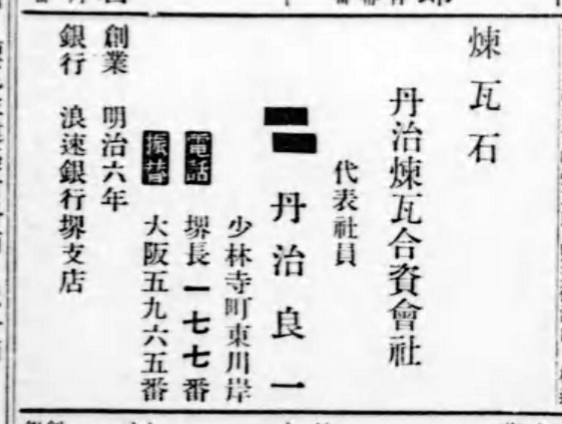 煉瓦石
丹治煉瓦合資會社
代表社員
丹治良一
少林寺町東川岸
電話 堺長一七七番
振替 大阪五九六五番
創業 明治六年
銀行 浪速銀行堺支店